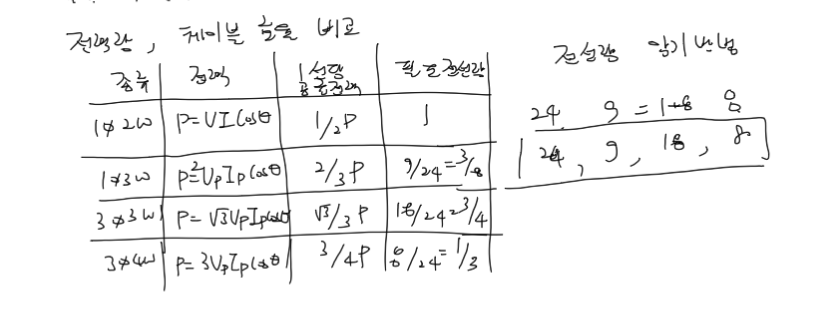 전력량, 케이블 굵을 비교
종류 전력 1선당 공급전력 필요전선량
1φ2W P=VICosθ 1/2P 1
1φ3W P=2VpIpCosθ 2/3P 9/24=3/8
3φ3W P=√3VpIpCosθ √3/3P 18/24=3/4
3φ4W P=3VpIpCosθ 3/4P 8/24=1/3
전선량 암기 방법
24 9=18 8
24, 9, 18, 8